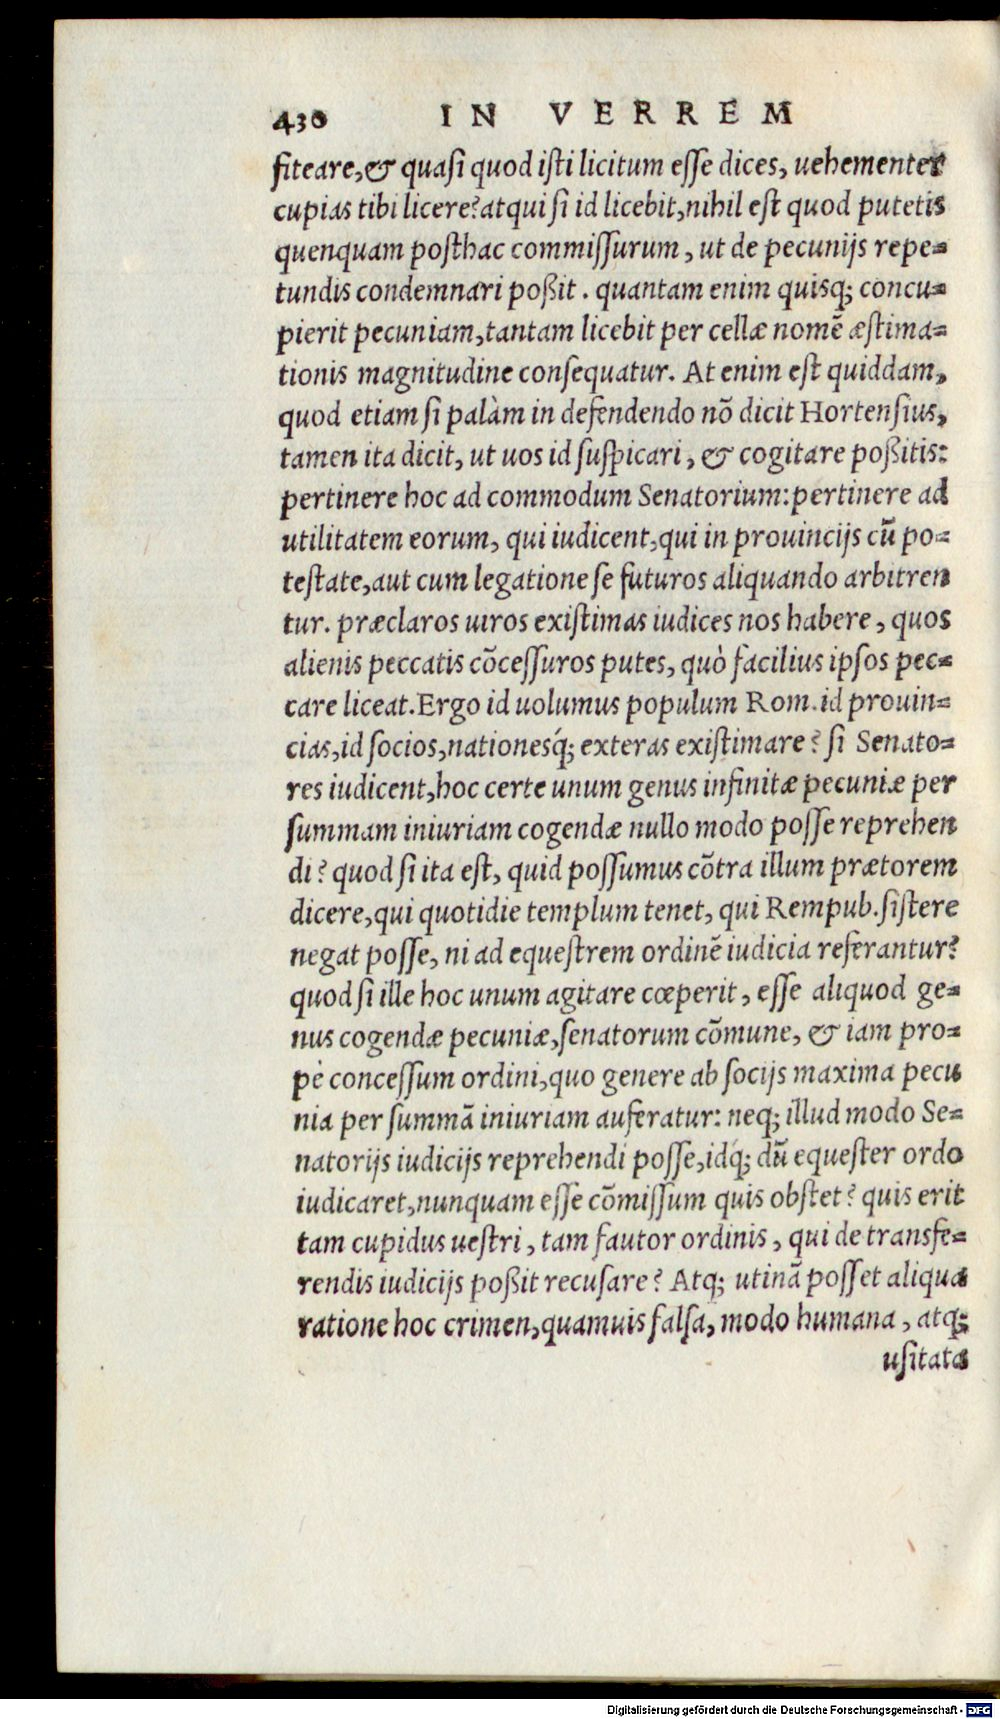 430 IN VERREM
fiteare,& quasi quod isti licitum esse dices, uehementer
cupias tibi licere?atqui si id licebit,nihil est quod putetis
quenquam posthac commissurum, ut de pecunijs repe=
tundis condemnari poßit. quantam enim quisq; concu=
pierit pecuniam,tantam licebit per cellæ nomē æstima=
tionis magnitudine consequatur. At enim est quiddam,
quod etiam si palàm in defendendo nō dicit Hortensius,
tamen ita dicit, ut uos id suspicari, & cogitare poßitis:
pertinere hoc ad commodum Senatorium:pertinere ad
utilitatem eorum, qui iudicent,qui in prouincijs cū po=
testate,aut cum legatione se futuros aliquando arbitren
tur. præclaros uiros existimas iudices nos habere, quos
alienis peccatis cōcessuros putes, quò facilius ipsos pec=
care liceat.Ergo id uolumus populum Rom.id prouin=
cias,id socios,nationesq́; exteras existimare? si Senato=
res iudicent,hoc certe unum genus infinitæ pecuniæ per
summam iniuriam cogendæ nullo modo posse reprehen
di? quod si ita est, quid possumus cōtra illum prætorem
dicere,qui quotidie templum tenet, qui Rempub.sistere
negat posse, ni ad equestrem ordinē iudicia referantur?
quod si ille hoc unum agitare cœperit, esse aliquod ge=
nus cogendæ pecuniæ,senatorum cōmune, & iam pro=
pè concessum ordini,quo genere ab socijs maxima pecu
nia per summā iniuriam auferatur: neq; illud modo Se=
natorijs iudicijs reprehendi posse,idq́; dū equester ordo
iudicaret,nunquam esse cōmissum quis obstet? quis erit
tam cupidus uestri, tam fautor ordinis, qui de transfe=
rendis iudicijs poßit recusare? Atq; utinā posset aliqua
ratione hoc crimen,quamuis falsa, modo humana, atq;
usitata
Digitalisierung gefördert durch die Deutsche Forschungsgemeinschaft - DFG